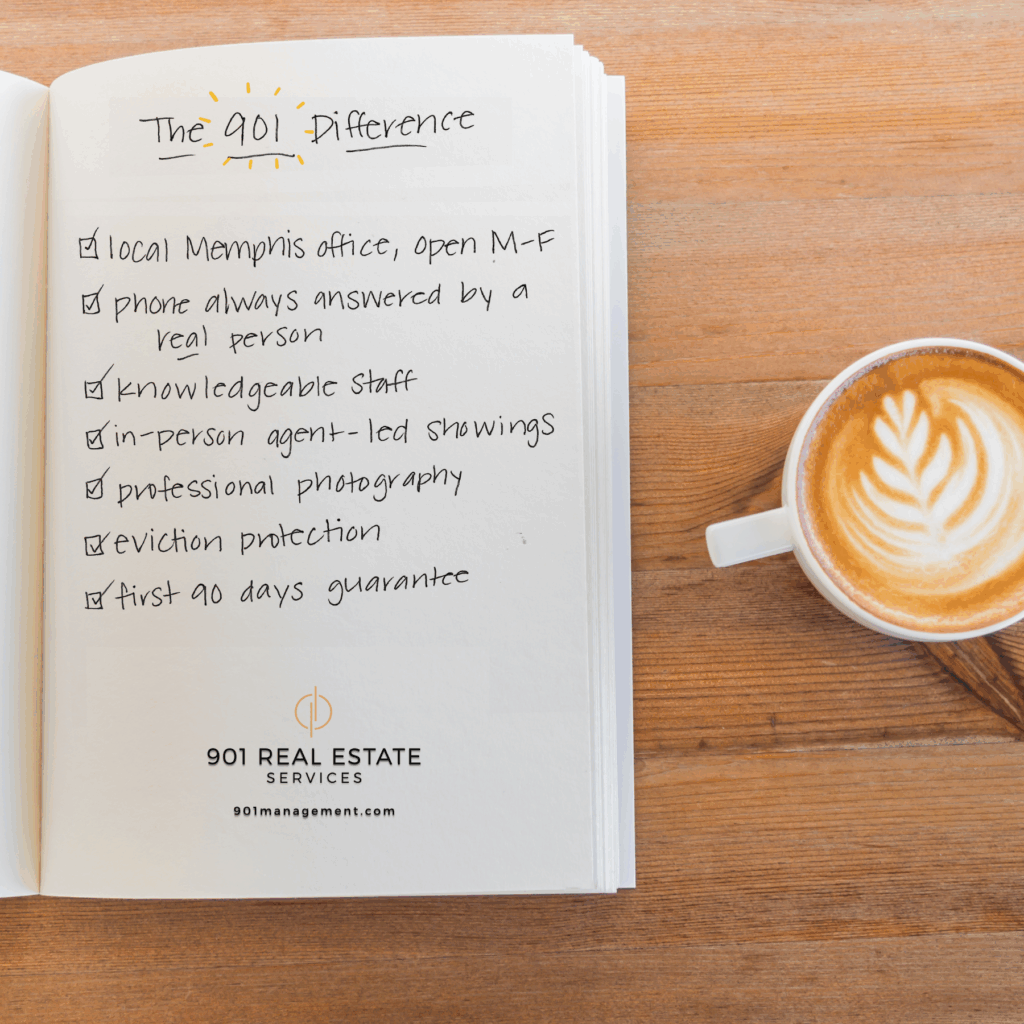 The 901 Difference
local Memphis office, open M-F
phone always answered by a
real person
knowledgeable staff
in-person agent-led showings
professional photography
eviction protection
first 90 days guarantee
901 REAL ESTATE
SERVICES
901management.com